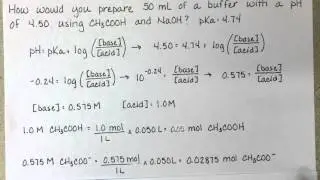 How would you prepare 50 mL of a buffer with a pH
of 4.50, using CH₃COOH and NaOH? pKa = 4.74
pH = pKa + log([base]/[acid]) → 4.50 = 4.74 + log([base]/[acid])
-0.24 = log([base]/[acid]) → 10^-0.24 = [base]/[acid] → 0.575 = [base]/[acid]
[base] = 0.575 M [acid] = 1.0 M
1.0 M CH₃COOH = 1.0 mol/1 L × 0.050 L = 0.05 mol CH₃COOH
0.575 M CH₃COO⁻ = 0.575 mol/1 L × 0.050 L = 0.02875 mol CH₃COO⁻